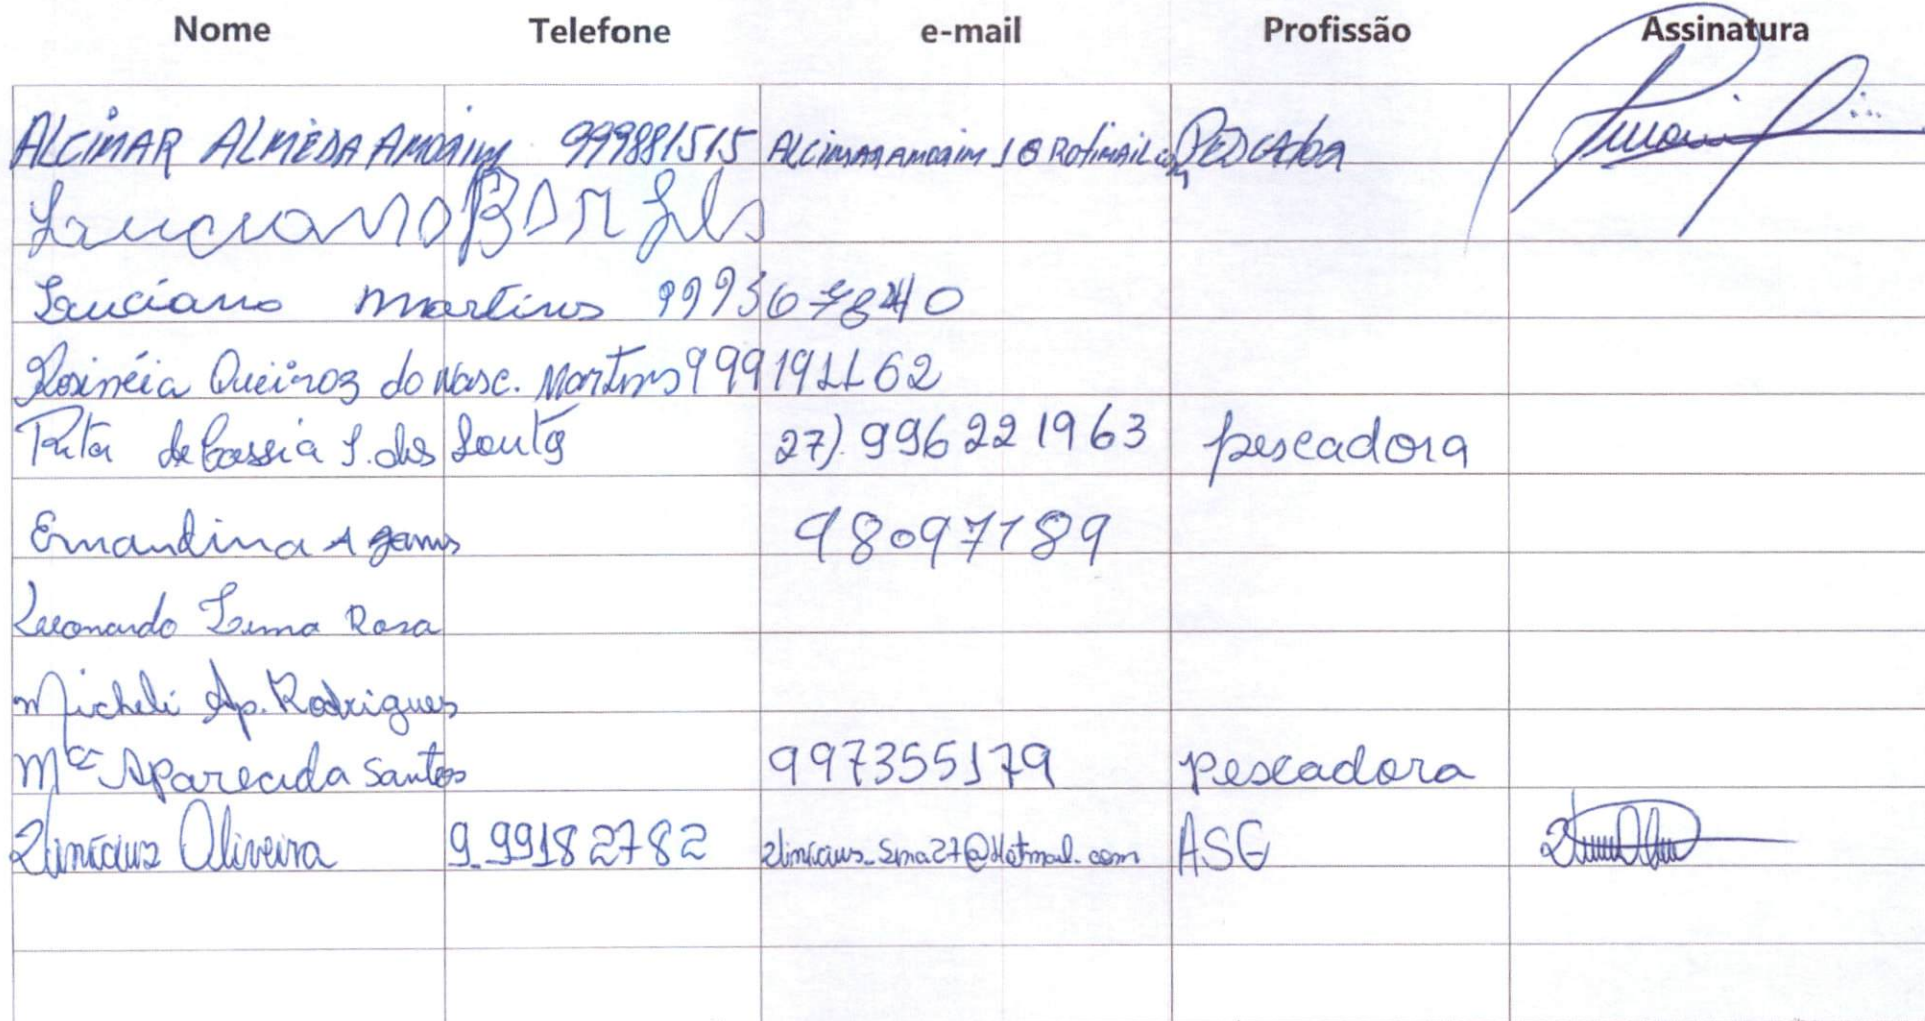 Nome Telefone e-mail Profissão Assinatura
ALCIMAR ALMEDA AMORIM 999881515
Luciano
Luciano Martins 9993678440
Rosinéia Queiroz do Nasc. Martins 999191162
Rita de Cassia S. dos Santos 27). 996221963 pescadora
Ernandina A 98097189
Leonardo Lima Rosa
Micheli Ap. Rodrigues
Mª Aparecida Santos 997355179 pescadora
Vinicius Oliveira 9_99182782 ASG